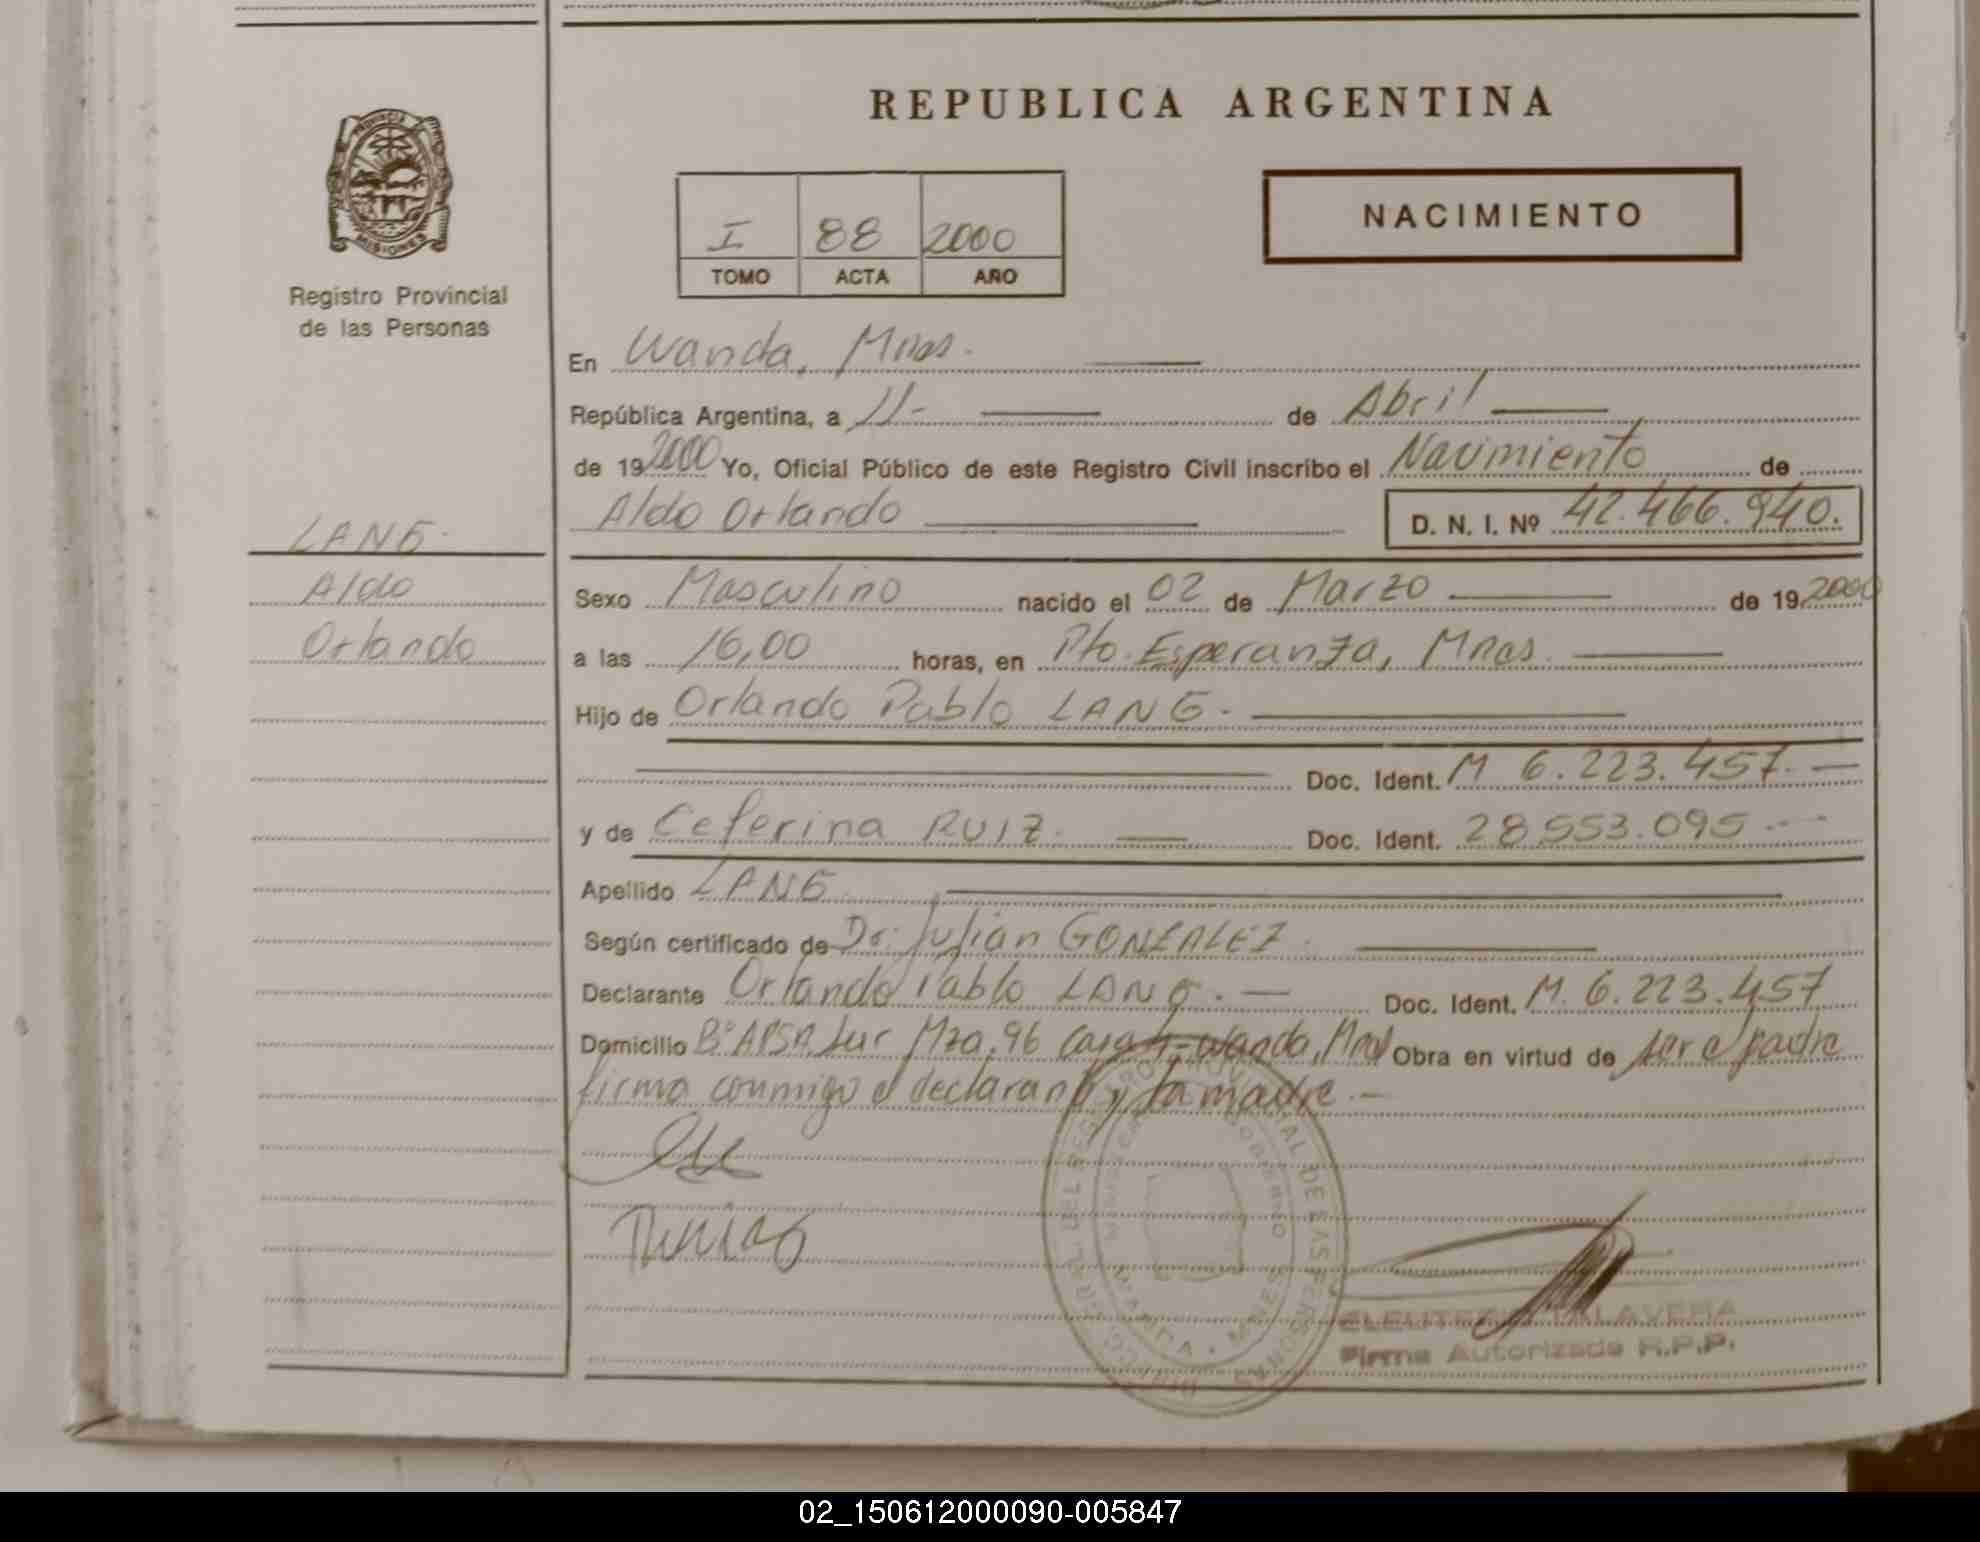 REPUBLICA ARGENTINA
PROVINCIA
MISIONES
Registro Provincial
de las Personas
I 88 2000
TOMO ACTA AÑO
NACIMIENTO
En Wanda, Mnes.
República Argentina, a 11- de Abril
de 19 2000 Yo, Oficial Público de este Registro Civil inscribo el Nacimiento de
Aldo Orlando D. N. I. Nº 42.466.940.
LANG.
Aldo
Orlando
Sexo Masculino nacido el 02 de Marzo de 19 2000
a las 16,00 horas, en Pto. Esperanza, Mnes.
Hijo de Orlando Pablo LANG.
Doc. Ident. M 6.223.457.
y de Ceferina RUIZ. Doc. Ident. 28.553.095
Apellido LANG
Según certificado de Dr. Julián GONZALEZ.
Declarante Orlando Pablo LANG. Doc. Ident. M. 6.223.457
Domicilio Bº APSA Sur Mza. 96 Casa Wanda, Mnes Obra en virtud de ser el padre
firma conmigo el declarante y la madre.
WANDA - MNES
ELEUTERIO TALAVERA
Firma Autorizada R.P.P.
02_150612000090-005847